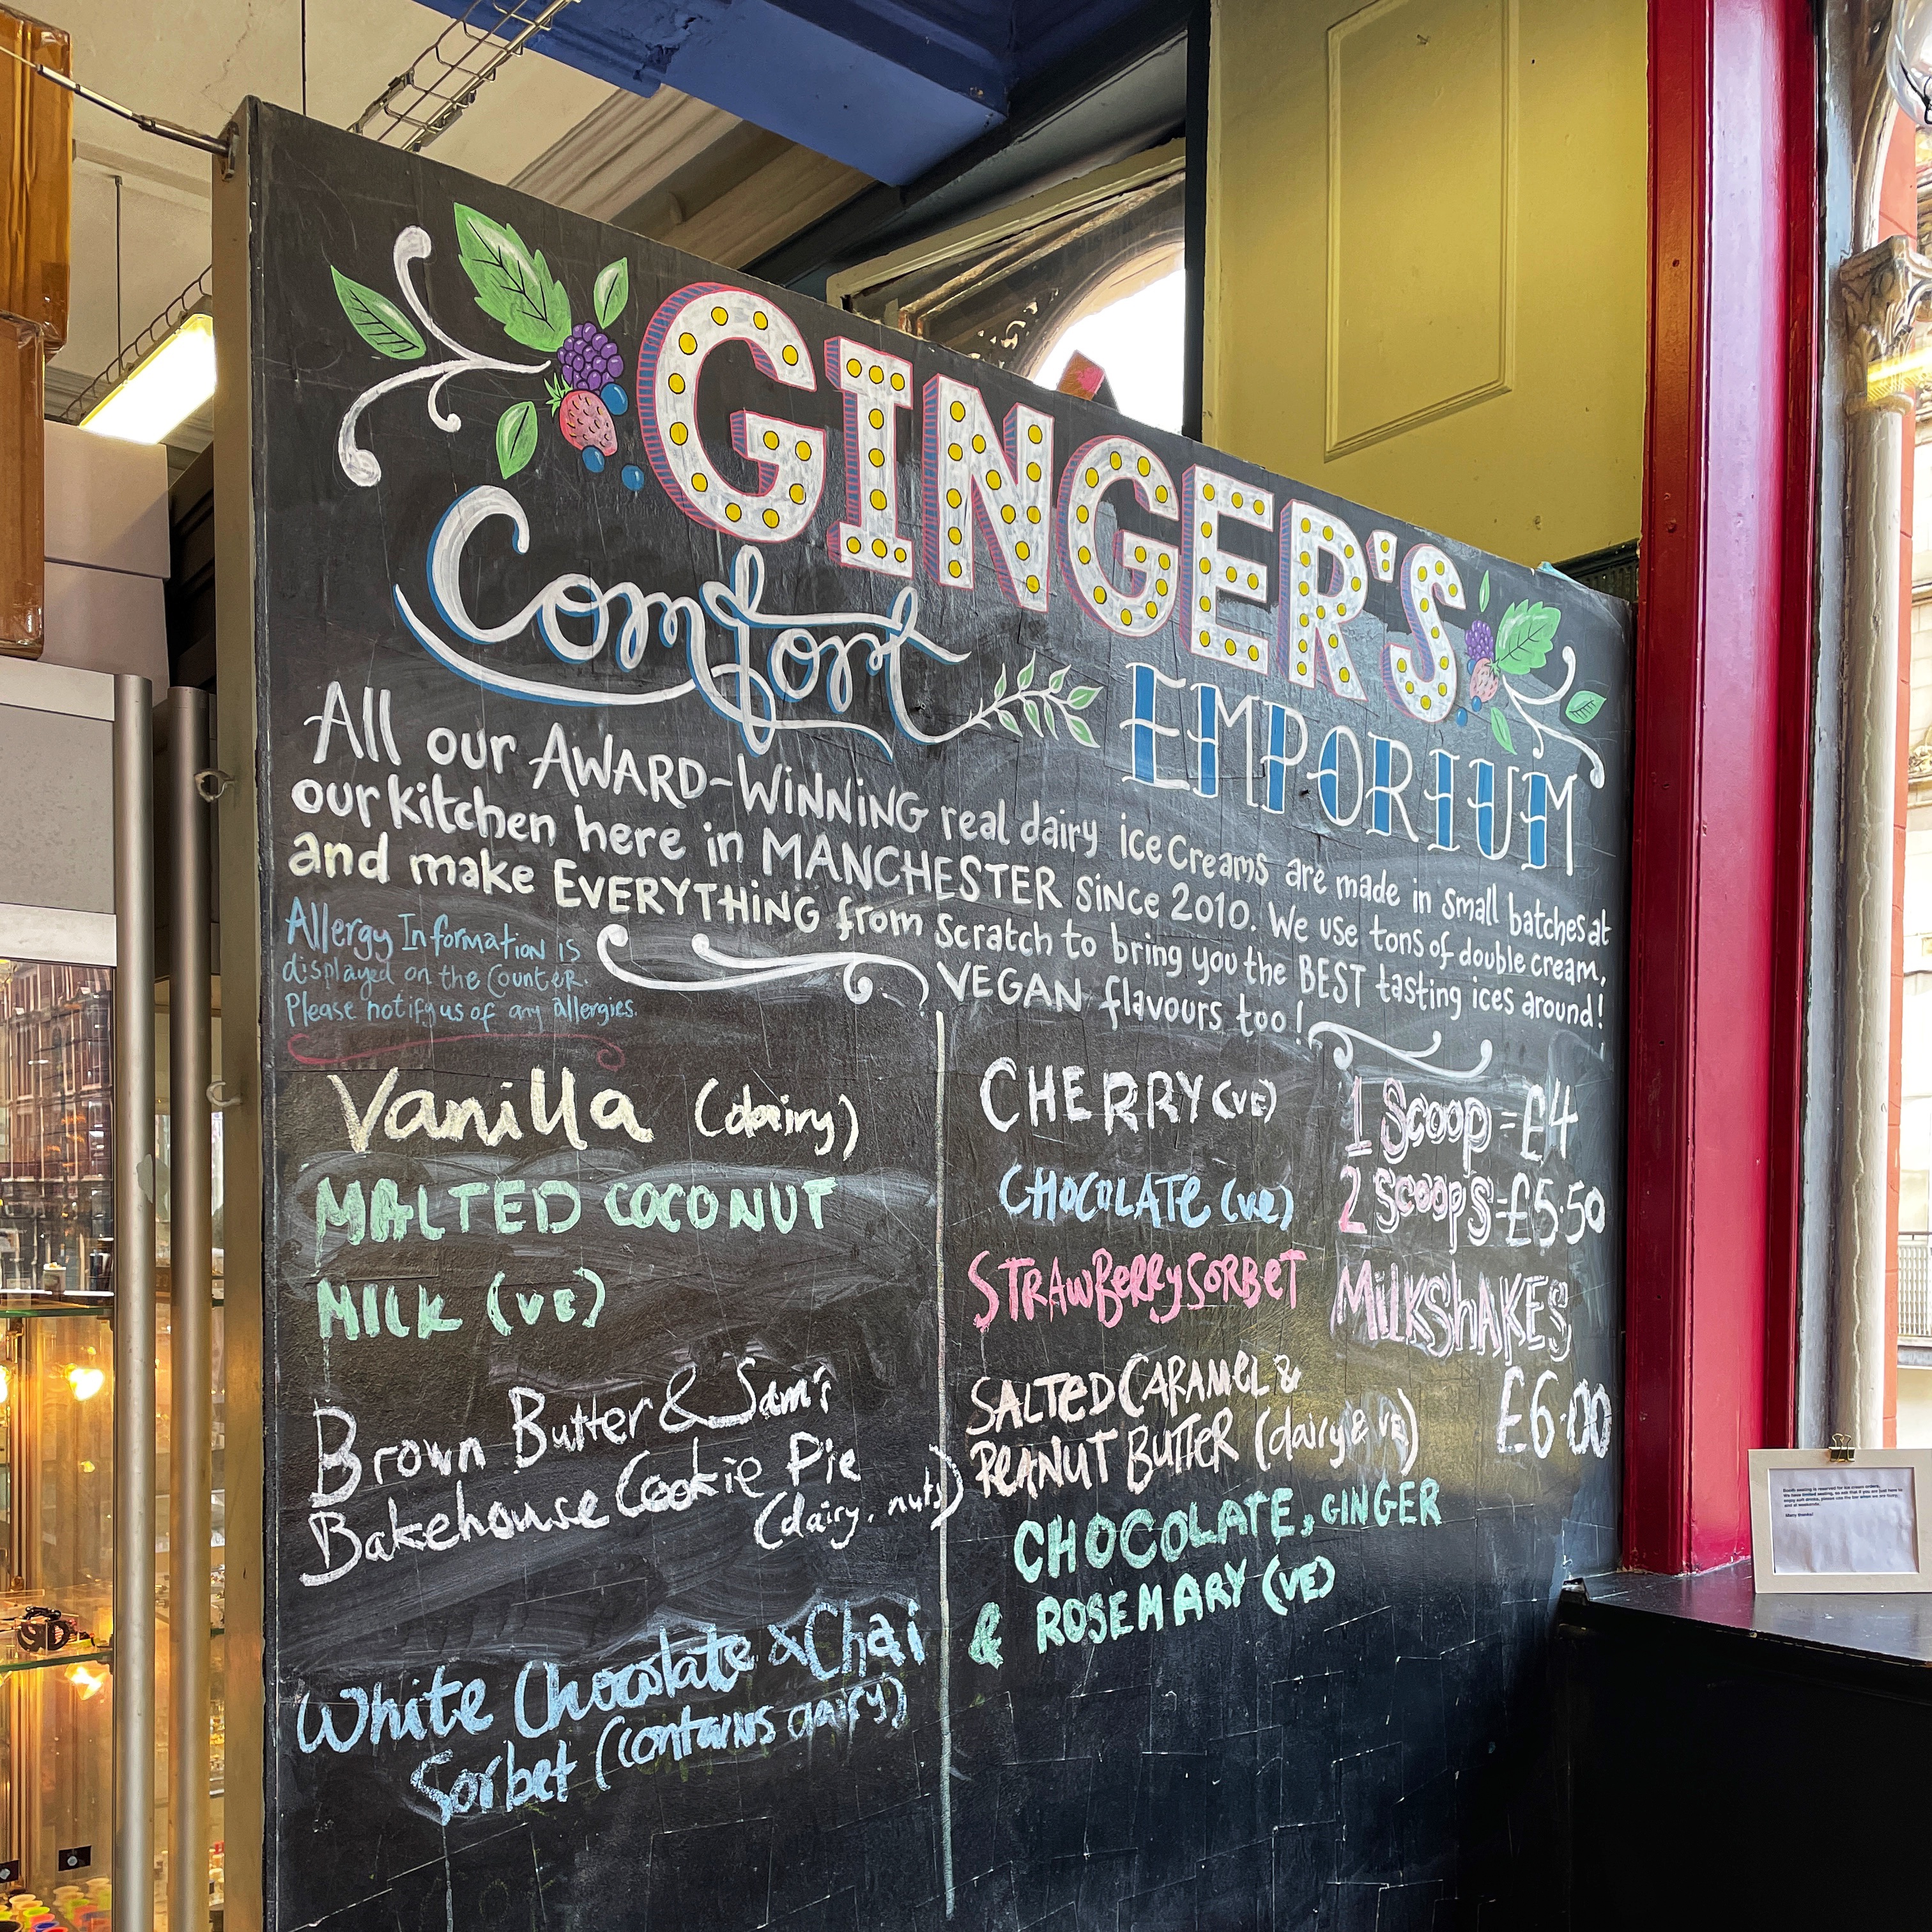 GINGER'S
Comfort
EMPORIUM
All our AWARD-WINNING real dairy ice creams are made in small batches at
our kitchen here in MANCHESTER since 2010. We use tons of double cream,
and make EVERYTHING from scratch to bring you the BEST tasting ices around!
VEGAN flavours too!
Allergy Information is
displayed on the counter.
Please notify us of any allergies.
Vanilla (dairy)
MALTED COCONUT
MILK (ve)
Brown Butter & Sam's
Bakehouse Cookie Pie
(dairy, nuts)
White Chocolate & Chai
Sorbet (contains dairy)
CHERRY (VE)
CHOCOLATE (ve)
STRAWBERRY SORBET
SALTED CARAMEL &
PEANUT BUTTER (dairy & VE)
CHOCOLATE, GINGER
& ROSEMARY (VE)
1 Scoop = £4
2 scoops = £5.50
MILKSHAKES
£6.00
Many thanks!